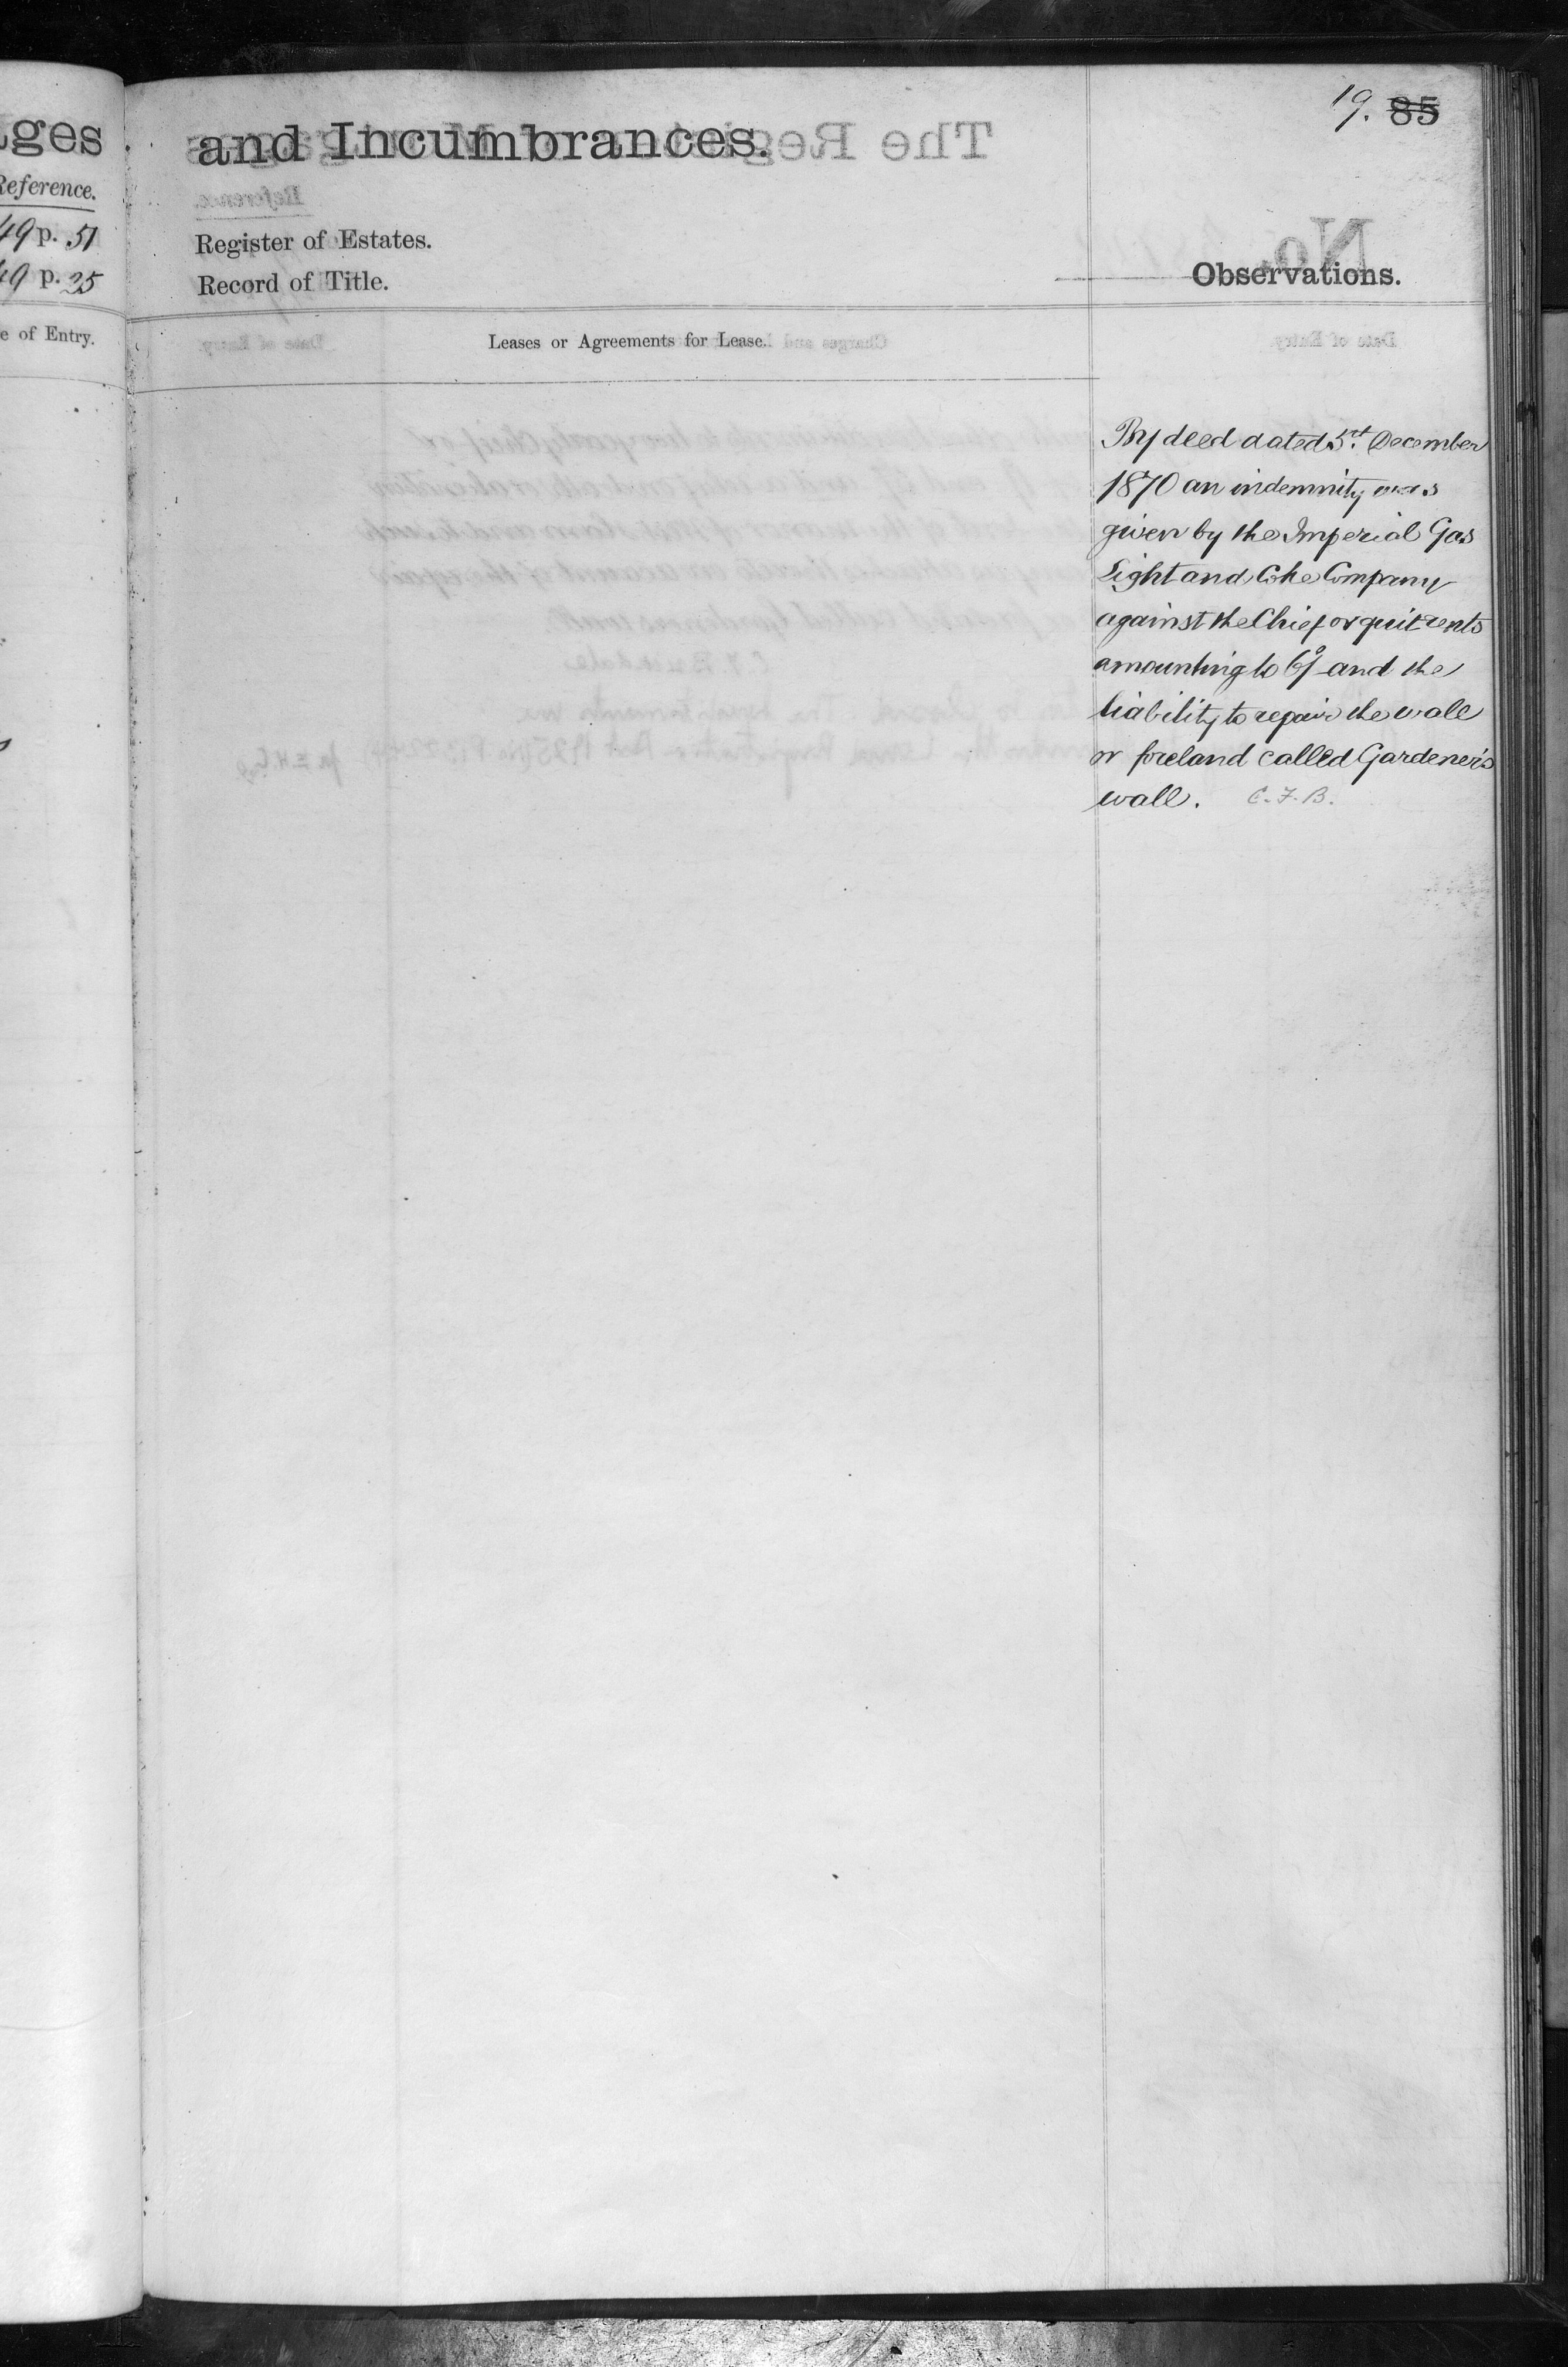 ges
Reference.
49 p. 51
49 p. 35
e of Entry.
19. 85
and Incumbrances.
Register of Estates.
Record of Title.
Observations.
Leases or Agreements for Lease.
By deed dated December
1870 an indemnity was
given by the Imperial Gas
Light and Coke Company
against the Chief or quit rents
amounting to and the
liability to repair the wall
or foreland called Gardener's
wall. C.F.B.